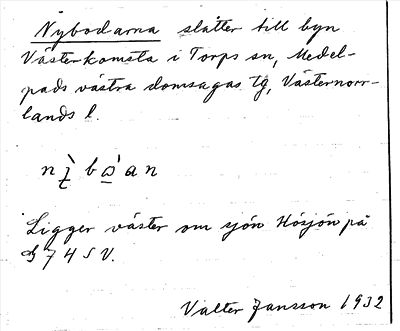 Nybodarna slåtter till byn
Västerkomsta i Torps sn, Medel-
pads västra domsagas tg, Västernorr-
lands l.
Ligger väster om sjön Hösjön på
74 SV.
Valter Jansson 1932